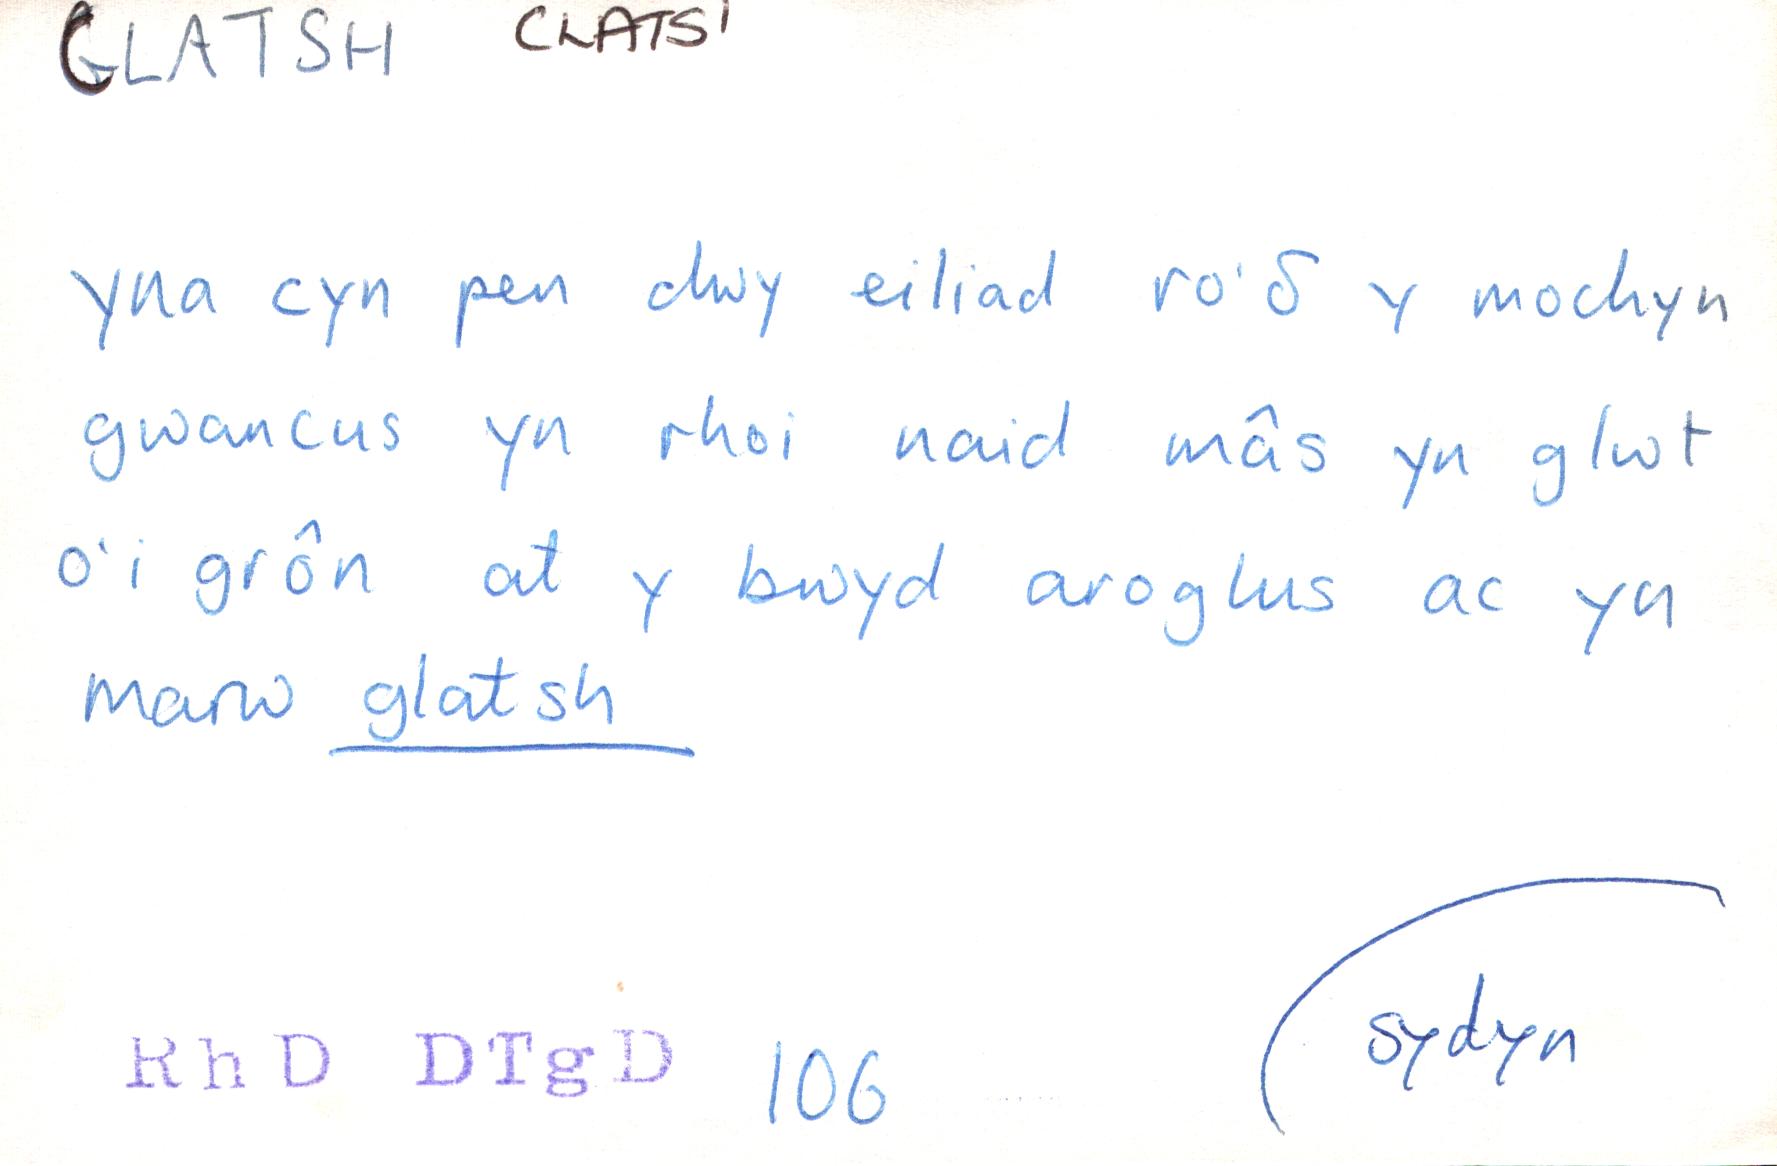 GLATSH CLATS'
yna cyn pen dwy eiliad ro'δ y mochyn
gwancus yn rhoi naid mâs yn glwt
o'i grôn at y bwyd aroglus ac yn
marw glatsh
sydyn
RhD DTgD 106